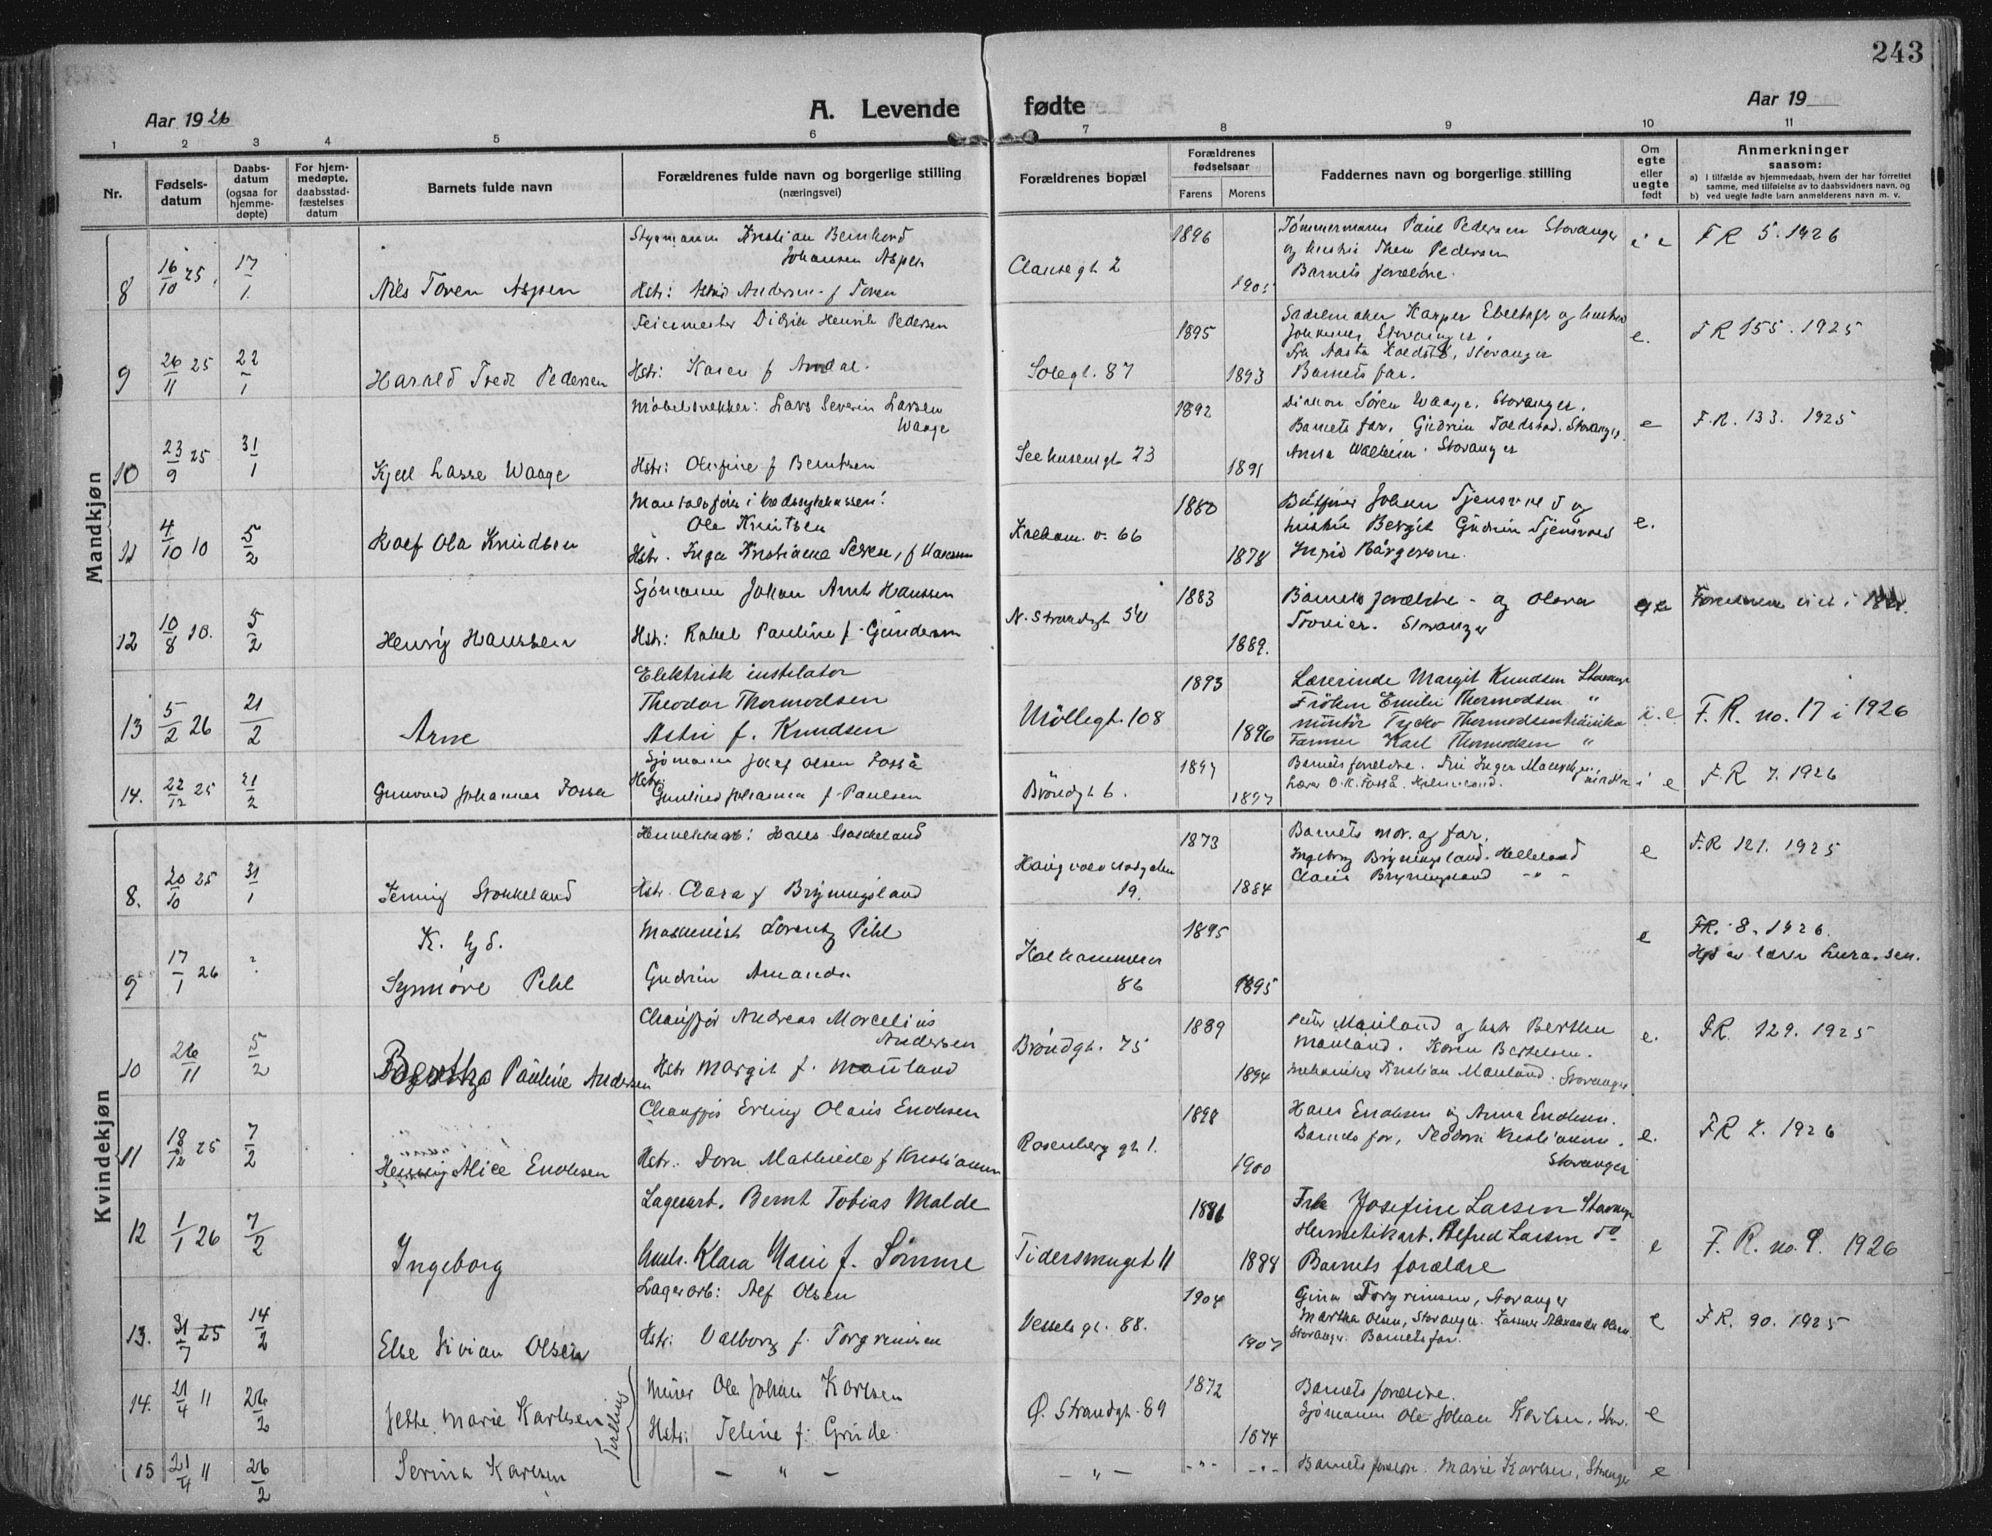 243
Aar 1926
A. Levende fødte
Aar 19
1 2 3 4 5 6 7 8 9 10 11
Nr.
Fødsels-
datum
Daabs-
datum
(ogsaa for
hjemme-
døpte)
For hjem-
medøpte,
daabsstad-
fæstelses
datum
Barnets fulde navn
Forældrenes fulde navn og borgerlige stilling
(næringsvei)
Forældrenes bopæl
Forældrenes
fødselsaar
Farens Morens
Faddernes navn og borgerlige stilling
Om
egte
eller
uegte
født
Anmerkninger
saasom:
a) I tilfælde av hjemmedaab, hvem der har forrettet
samme, med tilføielse av to daabsvidners navn, og
b) ved uegte fødte børn anmelderens navn m. v.
Mandkjøn
8 16/10 25. 17/1. Nils Toren Aspen
Styrmann Kristian Bernhard
Johansen Aspen
Hstr: Astrid Andersen f Toren
Clausegt. 2
1896
1901
Tømmermann Paul Pedersen Stavanger
og hustru Thea Pedersen
Barnets forældre.
e
F R 5. 1926
9 26/11 25 22/1 Harald Fredr. Pedersen
Feiermester Didrik Henrik Pedersen
Hstr: Karen f Arndal.
Solegt. 87
1895
1893
Sadelmaker Kasper og hustru
Stavanger.
Frk Aasta Stavanger
Barnets far.
e.
F R 155. 1925
10 23/9 25 31/1 Kjell Lasse Waage
Møbelsnekker: Lars Severin Larsen
Waage
Hstr: Olufine f Berntsen
Seehusensgt 23
1892
1891
Diakon Søren Waage. Stavanger.
Barnets far, Gudrun Stavanger.
Anna Stavanger
e
F. R. 133. 1925
11 4/10 10 5/2 Rolf Ola Knudsen
Ole Knutsen
Hstr. Inga Kristiane f Hansen
Kalham. v. 66
1880
1878
Johan Tjensvold og
hustru Bergit Gudrun Tjensvold
Ingrid
e.
12 10/8 10. 5/2 Henrÿ Hanssen
Sjømann Johan Arnt Hanssen
Hstr: Rakel Pauline f. Gundersen
N. Strandgt 54
1883
1889.
Barnets forældre - og Olava
Stavanger
13 5/2 26 21/2 Arne
Elektrisk instalatør
Theodor Thormodsen
Astri f. Knudsen
Møllegt. 108
1893
1896
Lærerinde Margit Knudsen Stavanger
Frøken Emilie Thormodsen "
Montør Tycko Thormodsen Amerika
Farmer Karl Thormodsen "
e
F. R. no. 17 i 1926
14. 22/12 25 21/2 Gunvald Johannes Fosså
Sjømann Josef Olsen Fosså
Hstr: Gunhild Johanna f Paulsen
Brøndgt 6.
1897
1897
Barnets forældre. Fru Inger
Lærer O. K. Fosså.
e
F. R 7. 1926
Kvindekjøn
8. 20/10 25 31/1 Jenny Stokkeland
Hermetikkarb: Hans Stokkeland
Hstr. Clara f Bryningsland
Haugvaldstadgaten
19.
1873
1884
Barnets mor. og far.
Ingeborg Bryningsland. Helleland
Claus Bryningsland - " -
e
F.R 121. 1925
9 17/1 26 ? K. og S.
Synnøve Pihl
Maskinist Lorentz Pihl
Gudrun Amanda
Kalhammeren
86
1895
1895
e
FR. 8. 1926.
10 26/11 5/2 Bertha Pauline Andersen
Chauffør Andreas Marcelius
Andersen
Hstr Margit f. Mauland
Brøndgt. 75
1889
1894
Peter Mauland og hstr Berthea
Mauland. Karen Bertelsen.
mekaniker Kristian Mauland. Stavanger
e.
FR. 129. 1925
11 18/12 25 7/2 Henny Alice Enoksen
Chauffør Erling Olaus Enoksen
Hstr. Dora Mathilde f Kristiansen
Rosenberg gt 1.
1898
1900
Hans Enoksen og Anna Enoksen.
Barnets far, Teodora Kristiansen.
Stavanger
e.
F R 7. 1926
12 1/1 26 7/2 Ingeborg
Lagerarb. Bernt Tobias Malde
Hustr. Klara Marie f. Sømme
Tidersmuget 11
1886
1888
Frk Josefine Larsen Stavanger
Hermetikarb. Alfred Larsen do
Barnets forældre
e
F. R. no. 9. 1926
13. 31/7 25 14/2 Else Vivian Olsen
Lagerarb: Alf Olsen
Hstr: Valborg f. Torgrimsen
Vesselsgt. 88.
1904
1907
Gina Torgrimsen, Stavanger
Martha Olsen, Stavanger. Alexander Olsen.
Stavanger. Barnets far.
e
F. R. 90. 1925
14. 21/4 11 26/2 Jette Marie Karlsen
Tvilling
Murer Ole Johan Karlsen
Hstr: Teline f: Grude
Ø. Strandgt. 89
1872
1874
Barnets forældre.
Sjømann Ole Johan Karlsen, Stav.
e
15 21/4 11 26/2 Serina Karlsen
- " -
- " -
- " - - " -
Barnets forældre. Marie Karlsen, Stavanger
e